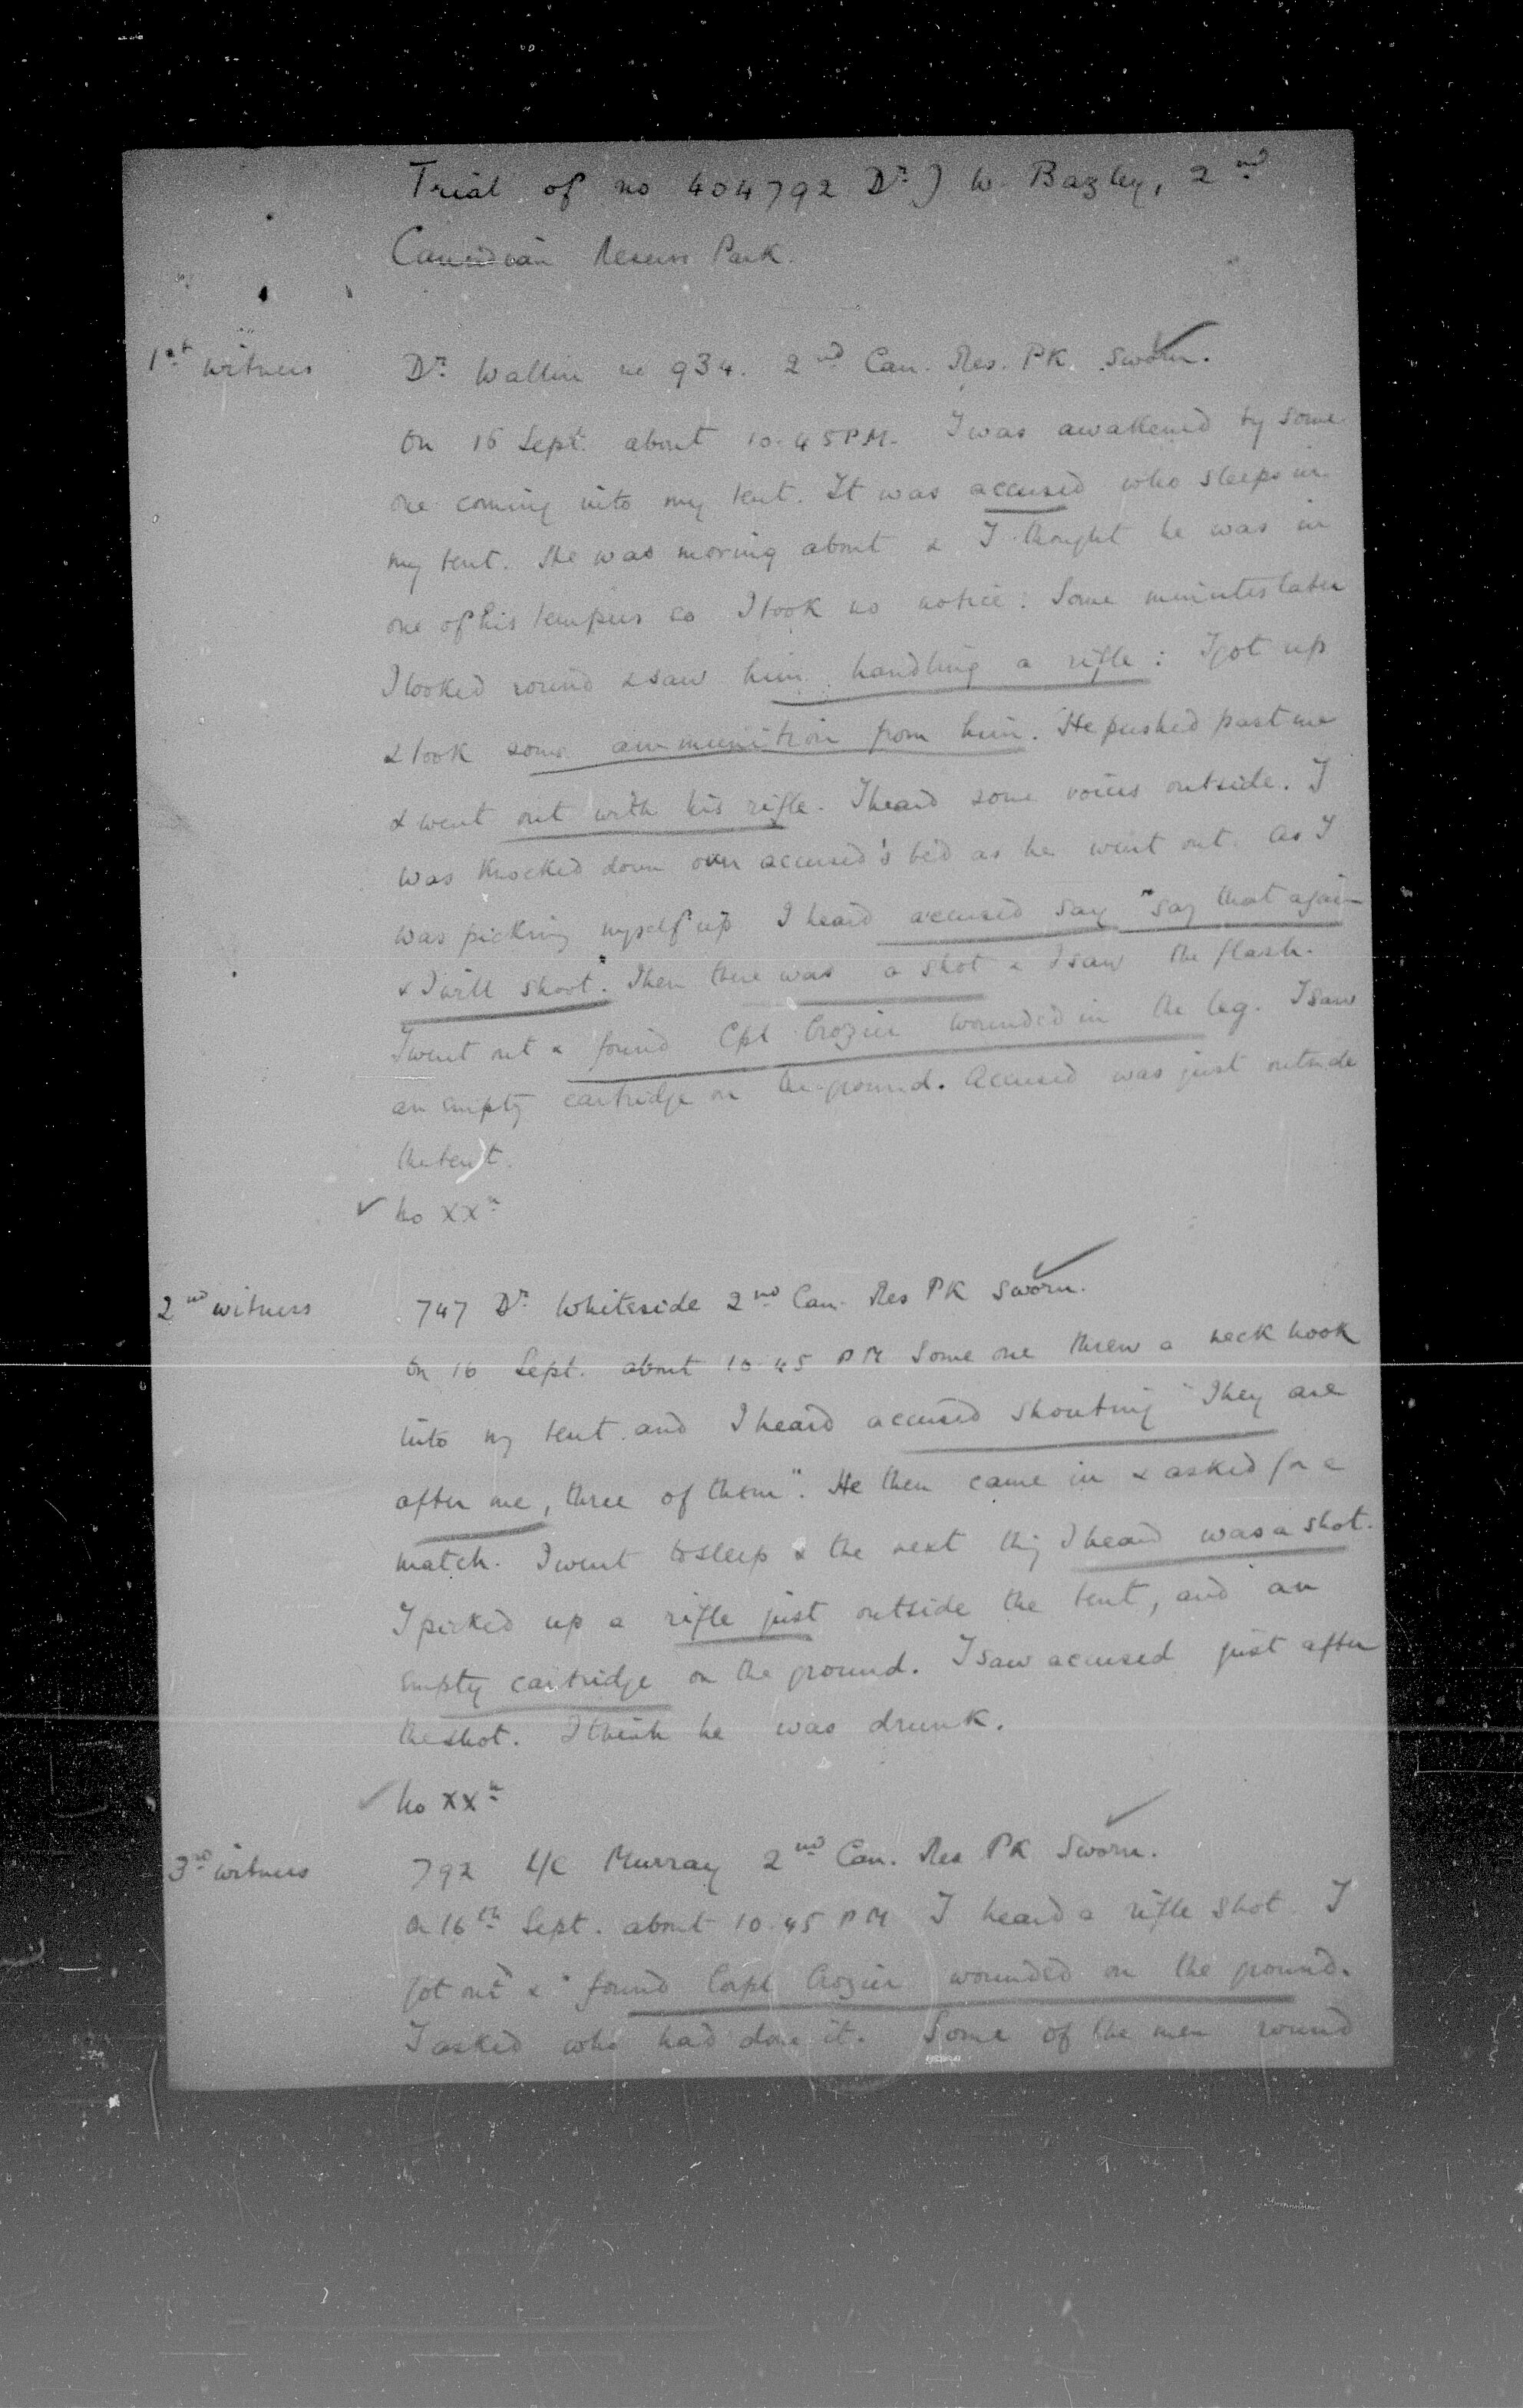 Trial of no 404792 Dr. J W. Bazley, 2nd
Canadian Reserve Park.
1st witness Dr. Wallin no 934. 2nd Can. Res. PK. Sworn.
On 16 Sept. about 10.45 PM. I was awakened by some
one coming into my tent. It was accused who sleeps in
my tent. He was moving about & I thought he was in
one of his tempers so I took no notice. Some minutes later
I looked round & saw him handling a rifle: I got up
& took some ammunition from him. He pushed past me
& went out with his rifle. I heard some voices outside. I
was knocked down over accused's bed as he went out. As I
was picking myself up I heard accused say "say that again
& I will shoot". Then there was a shot & I saw the flash.
I went out & found Cpl Crozier wounded in the leg. I saw
an empty cartridge on the ground. Accused was just outside
the tent.
✓ No XXn
2nd witness 747 Dr. Whiteside 2nd Can. Res PK Sworn.
On 16 Sept. about 10.45 PM Some one threw a neck hook
into my tent and I heard accused shouting "They are
after me, three of them". He then came in & asked for a
match. I went to sleep & the next thing I heard was a shot.
I picked up a rifle just outside the tent, and an
empty cartridge on the ground. I saw accused just after
the shot. I think he was drunk.
✓ No XXn
3rd witness 792 L/C Murray 2nd Can. Res PK Sworn.
On 16th Sept. about 10.45 PM I heard a rifle shot. I
got out & found Corpl Crozier wounded on the ground.
I asked who had done it. Some of the men round